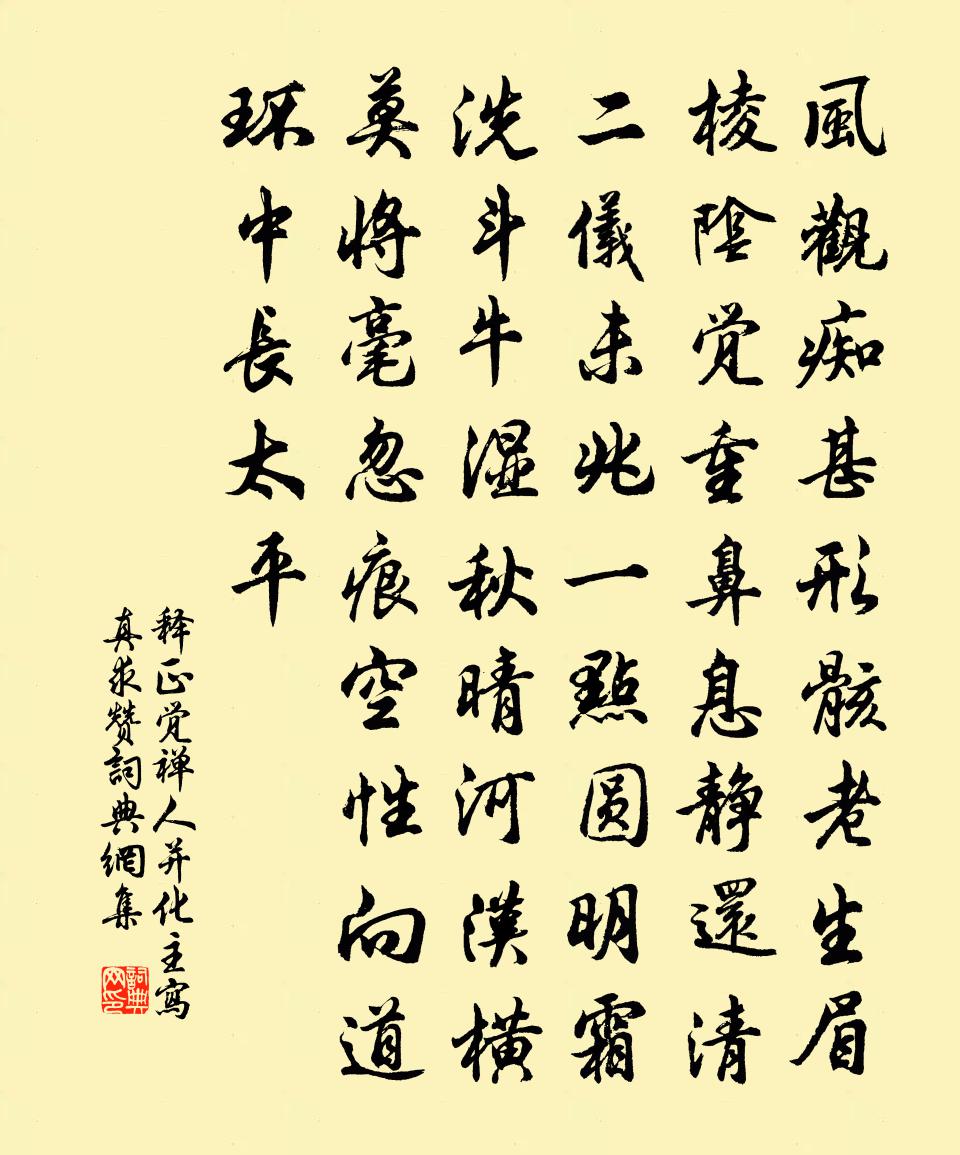 風觀痴甚形骸老生眉
棱陰覚重鼻息静還清
二儀未兆一點圆明霜
洗斗牛湿秋晴河漢横
莫將毫忽痕空性向道
环中長太平
释正覚禅人并化主寫
真求赞詞典網集
詞典网印